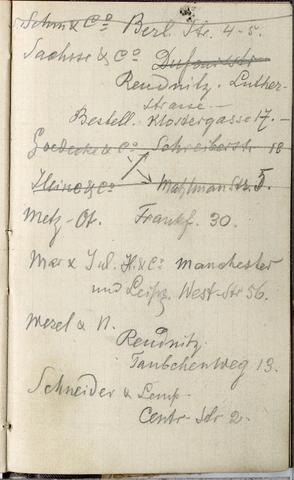 Schm & Co Berl. Str. 4-5.
Sachsse & Co Dufourstr
Reudnitz. Luther-
strasse —
Bestell. Klostergasse 17. —
Goedecke & Co. Schreiberstr 18
Heine & Co Mahlmanstr. 5.
Metz-Ot. Frankf. 30.
Marx Jul. H. & Co Manchester
und Leipz. West-Str 56.
Wezel & N.
Reudnitz
Täubchenweg 13.
Schneider & Lemp
Centr-Str 2.